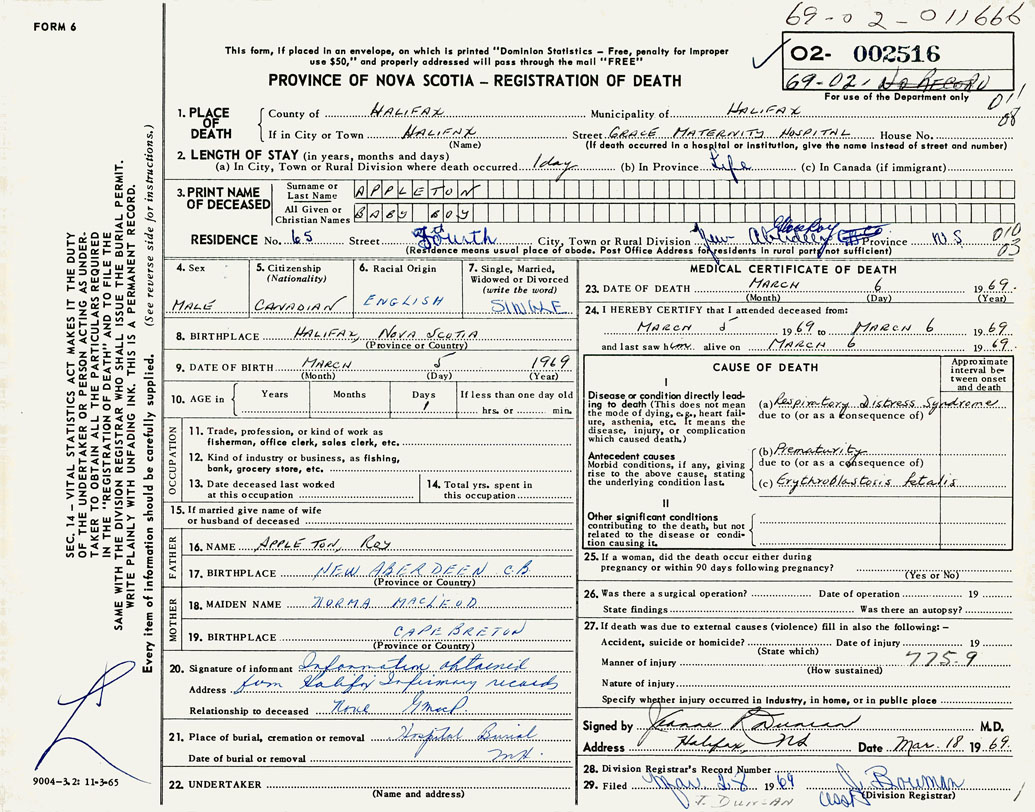 FORM 6
69-02-011666
02- 002516
69-02. NO RECORD
For use of the Department only
011
08
This form, if placed in an envelope, on which is printed "Dominion Statistics – Free, penalty for improper
use $50," and properly addressed will pass through the mail "FREE"
PROVINCE OF NOVA SCOTIA – REGISTRATION OF DEATH
1. PLACE OF DEATH
County of HALIFAX Municipality of HALIFAX
If in City or Town HALIFAX Street GRACE MATERNITY HOSPITAL House No.
(Name) (If death occurred in a hospital or institution, give the name instead of street and number)
2. LENGTH OF STAY (in years, months and days)
(a) In City, Town or Rural Division where death occurred 1 day (b) In Province Life (c) In Canada (if immigrant)
3. PRINT NAME OF DECEASED
Surname or Last Name APPLETON
All Given or Christian Names BABY BOY
RESIDENCE No. 65 Street Fourth City, Town or Rural Division New Aberdeen Province N.S
010
03
(Residence means usual place of abode. Post Office Address for residents in rural parts not sufficient)
4. Sex
MALE
5. Citizenship
(Nationality)
CANADIAN
6. Racial Origin
ENGLISH
7. Single, Married,
Widowed or Divorced
(write the word)
SINGLE
8. BIRTHPLACE HALIFAX, NOVA SCOTIA
(Province or Country)
9. DATE OF BIRTH MARCH 5 1969
(Month) (Day) (Year)
10. AGE in
Years Months Days If less than one day old
1 hrs. or min.
OCCUPATION
11. Trade, profession, or kind of work as
fisherman, office clerk, sales clerk, etc.
12. Kind of industry or business, as fishing,
bank, grocery store, etc.
13. Date deceased last worked
at this occupation
14. Total yrs. spent in
this occupation
15. If married give name of wife
or husband of deceased
FATHER
16. NAME APPLETON, ROY
17. BIRTHPLACE NEW ABERDEEN C.B
(Province or Country)
MOTHER
18. MAIDEN NAME NORMA MACLEOD
19. BIRTHPLACE CAPE BRETON
(Province or Country)
20. Signature of informant Information obtained
Address from Halifax Infirmary records
Relationship to deceased None
21. Place of burial, cremation or removal Hospital Burial
Date of burial or removal
22. UNDERTAKER
(Name and address)
MEDICAL CERTIFICATE OF DEATH
23. DATE OF DEATH MARCH 6 1969.
(Month) (Day) (Year)
24. I HEREBY CERTIFY that I attended deceased from:
MARCH 5 1969 to MARCH 6 1969
and last saw him alive on MARCH 6 1969.
CAUSE OF DEATH
Approximate
interval be-
tween onset
and death
I
Disease or condition directly lead-
ing to death (This does not mean
the mode of dying, e.g., heart fail-
ure, asthenia, etc. It means the
disease, injury, or complication
which caused death.)
(a) Respiratory Distress Syndrome
due to (or as a consequence of)
Antecedent causes
Morbid conditions, if any, giving
rise to the above cause, stating
the underlying condition last.
(b) Prematurity
due to (or as a consequence of)
(c) Erythroblastosis fetalis
II
Other significant conditions
contributing to the death, but not
related to the disease or condi-
tion causing it.
25. If a woman, did the death occur either during
pregnancy or within 90 days following pregnancy?
(Yes or No)
26. Was there a surgical operation? Date of operation 19
State findings Was there an autopsy?
27. If death was due to external causes (violence) fill in also the following:–
Accident, suicide or homicide? Date of injury 19
(State which)
Manner of injury 775.9
(How sustained)
Nature of injury
Specify whether injury occurred in industry, in home, or in public place
Signed by Jeanne R Duncan M.D.
Address Halifax, NS Date Mar. 18 1969.
28. Division Registrar's Record Number
29. Filed Mar. 28 1969 J. Bowman
J. DUNCAN asst (Division Registrar)
SEC. 14 – VITAL STATISTICS ACT MAKES IT THE DUTY
OF THE UNDERTAKER OR PERSON ACTING AS UNDER-
TAKER TO OBTAIN ALL THE PARTICULARS REQUIRED
IN THE "REGISTRATION OF DEATH" AND TO FILE THE
SAME WITH THE DIVISION REGISTRAR WHO SHALL ISSUE THE BURIAL PERMIT.
WRITE PLAINLY WITH UNFADING INK. THIS IS A PERMANENT RECORD.
Every item of information should be carefully supplied. (See reverse side for instructions.)
9004-3.2: 11-3-65